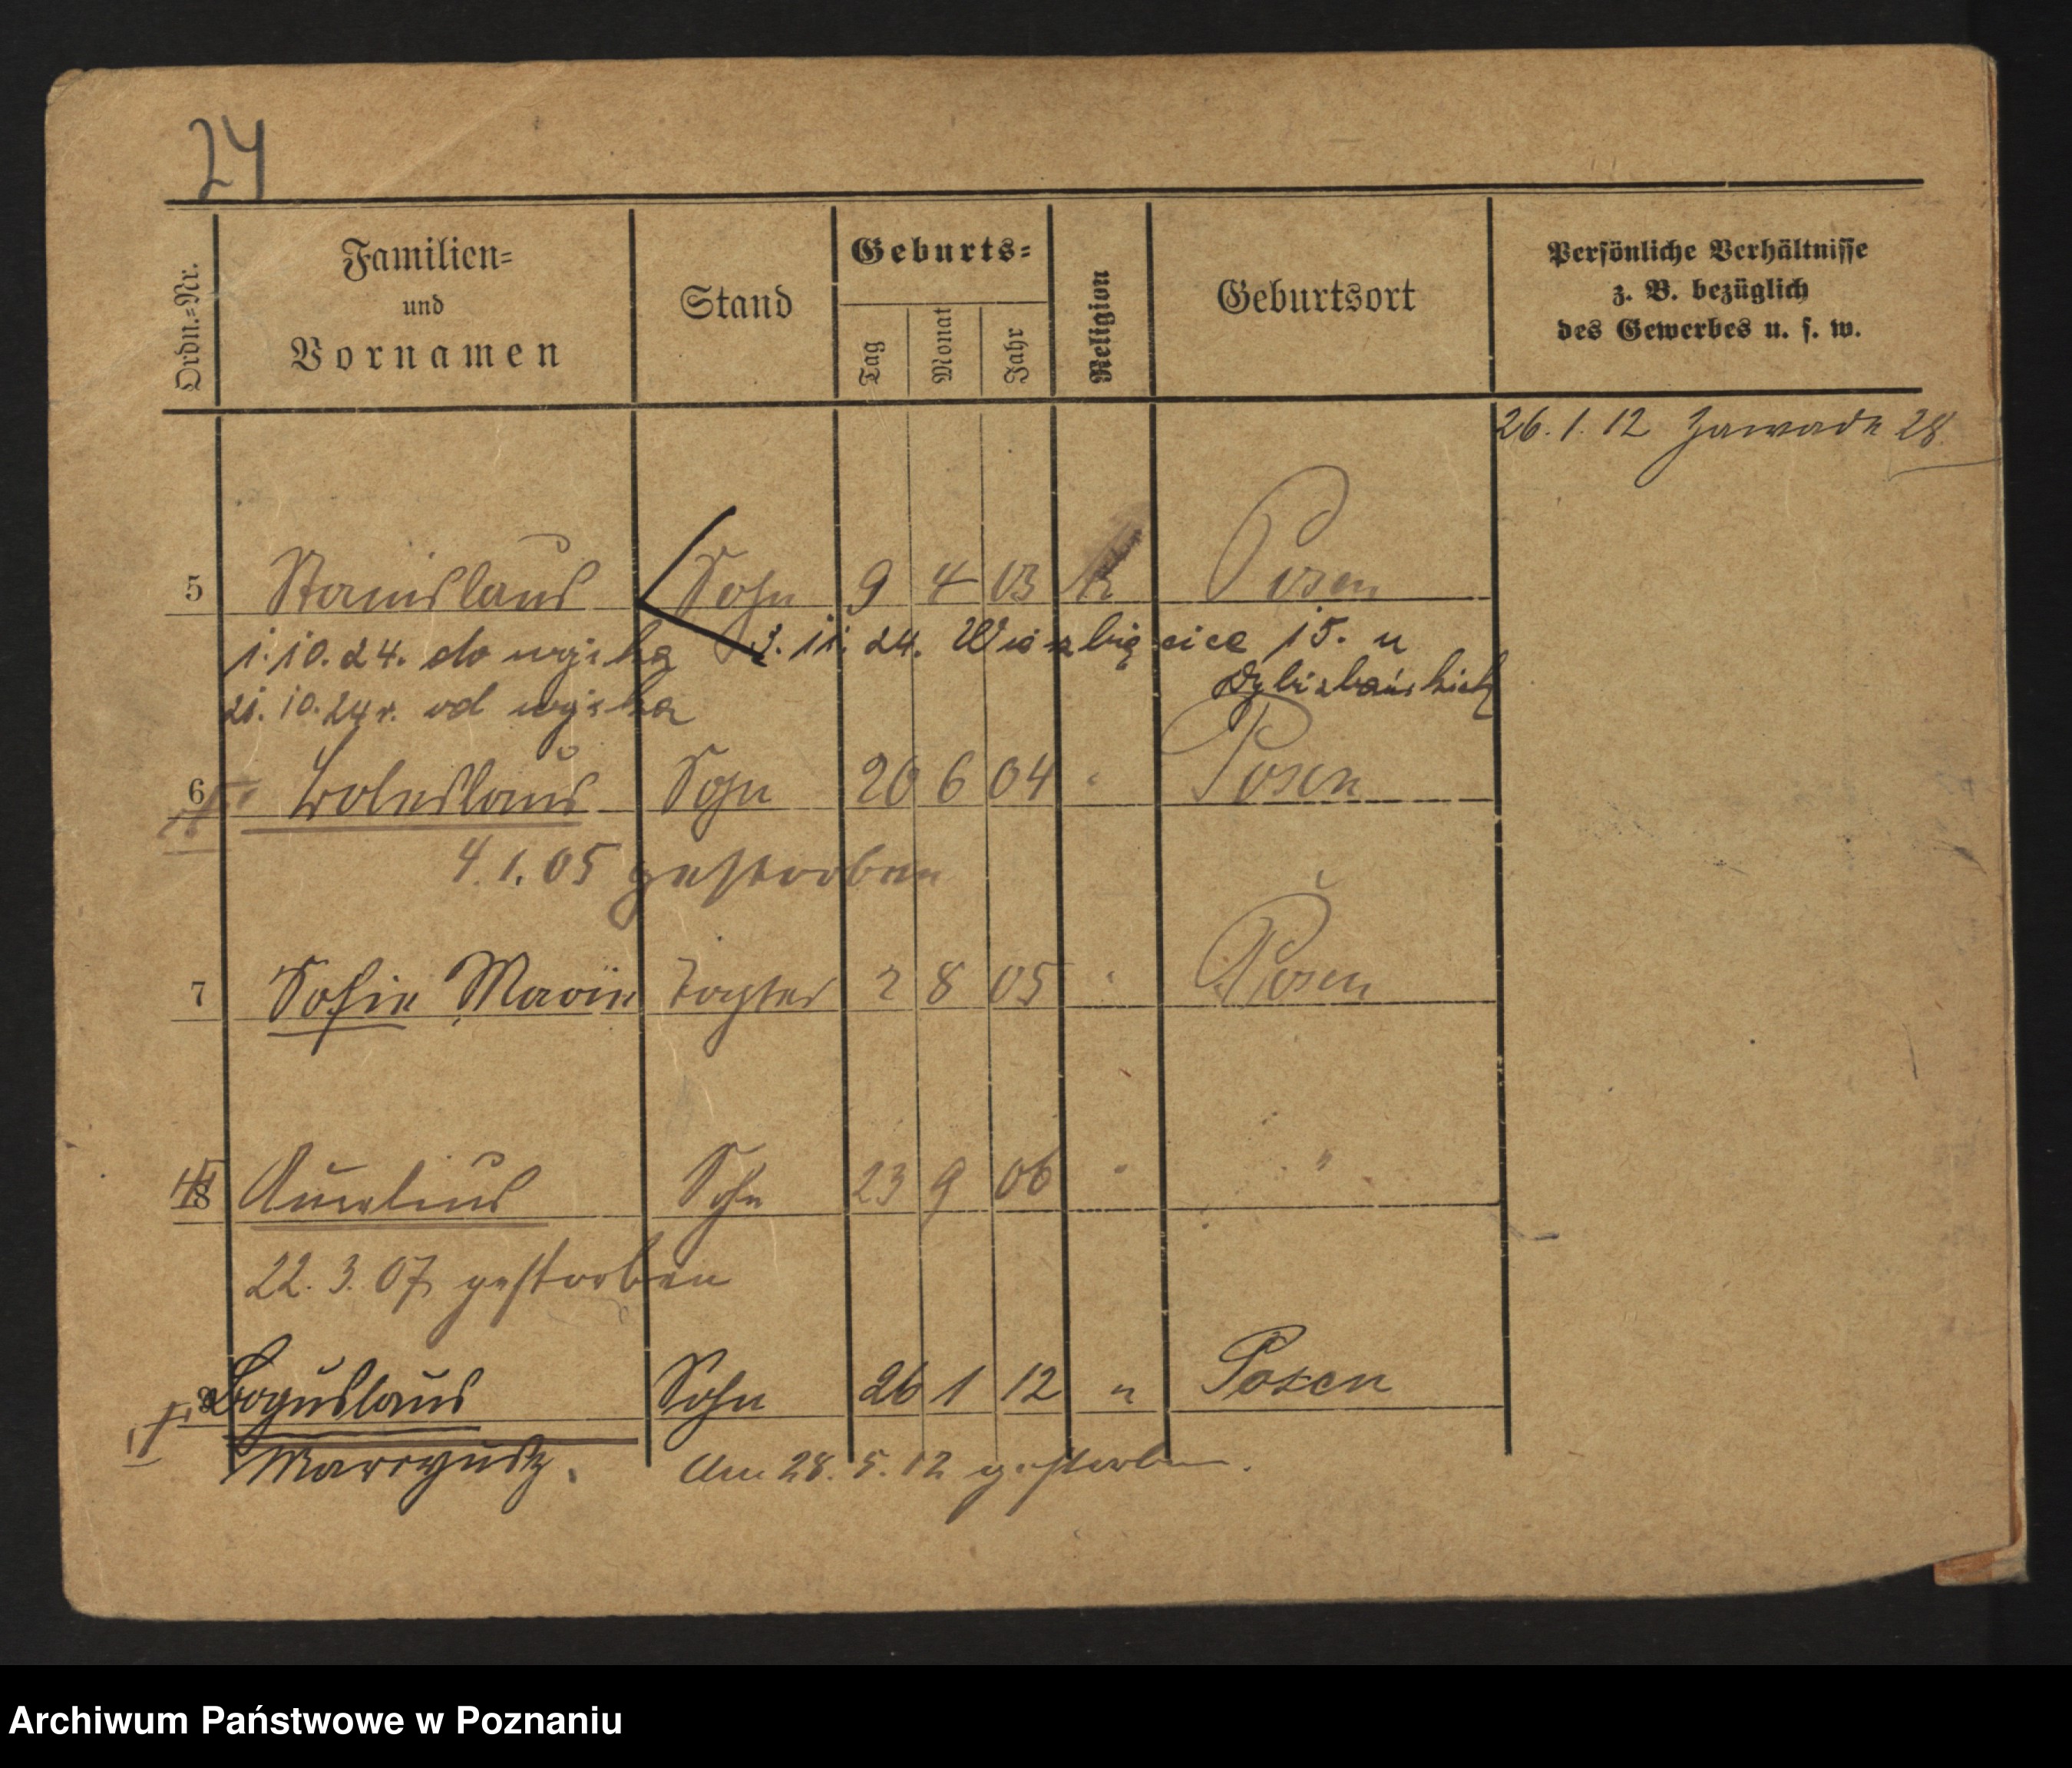 24
Ordn.-Nr.
Familien-
und
Vornamen
Stand
Geburts-
Tag
Monat
Jahr
Religion
Geburtsort
Persönliche Verhältnisse
z. B. bezüglich
des Gewerbes u. s. w.
26. 1. 12 Zawade 28
5 Stanislaus Sohn 9 4 03 k Posen
1. 10. 24. do wojska 3. 11. 24. Wierzbięcice 15. u
21. 10. 24 r. od wojska
6 Boleslaus Sohn 20 6 04 " Posen
4. 1. 05 gestorben
7 Sofie Marie Tochter 2 8 05 " Posen
8 Aurelius Sohn 23 9 06 " "
22. 3. 07 gestorben
Boguslaus Sohn 26 1 12 " Posen
Am 28. 5. 12 gestorben.
Archiwum Państwowe w Poznaniu